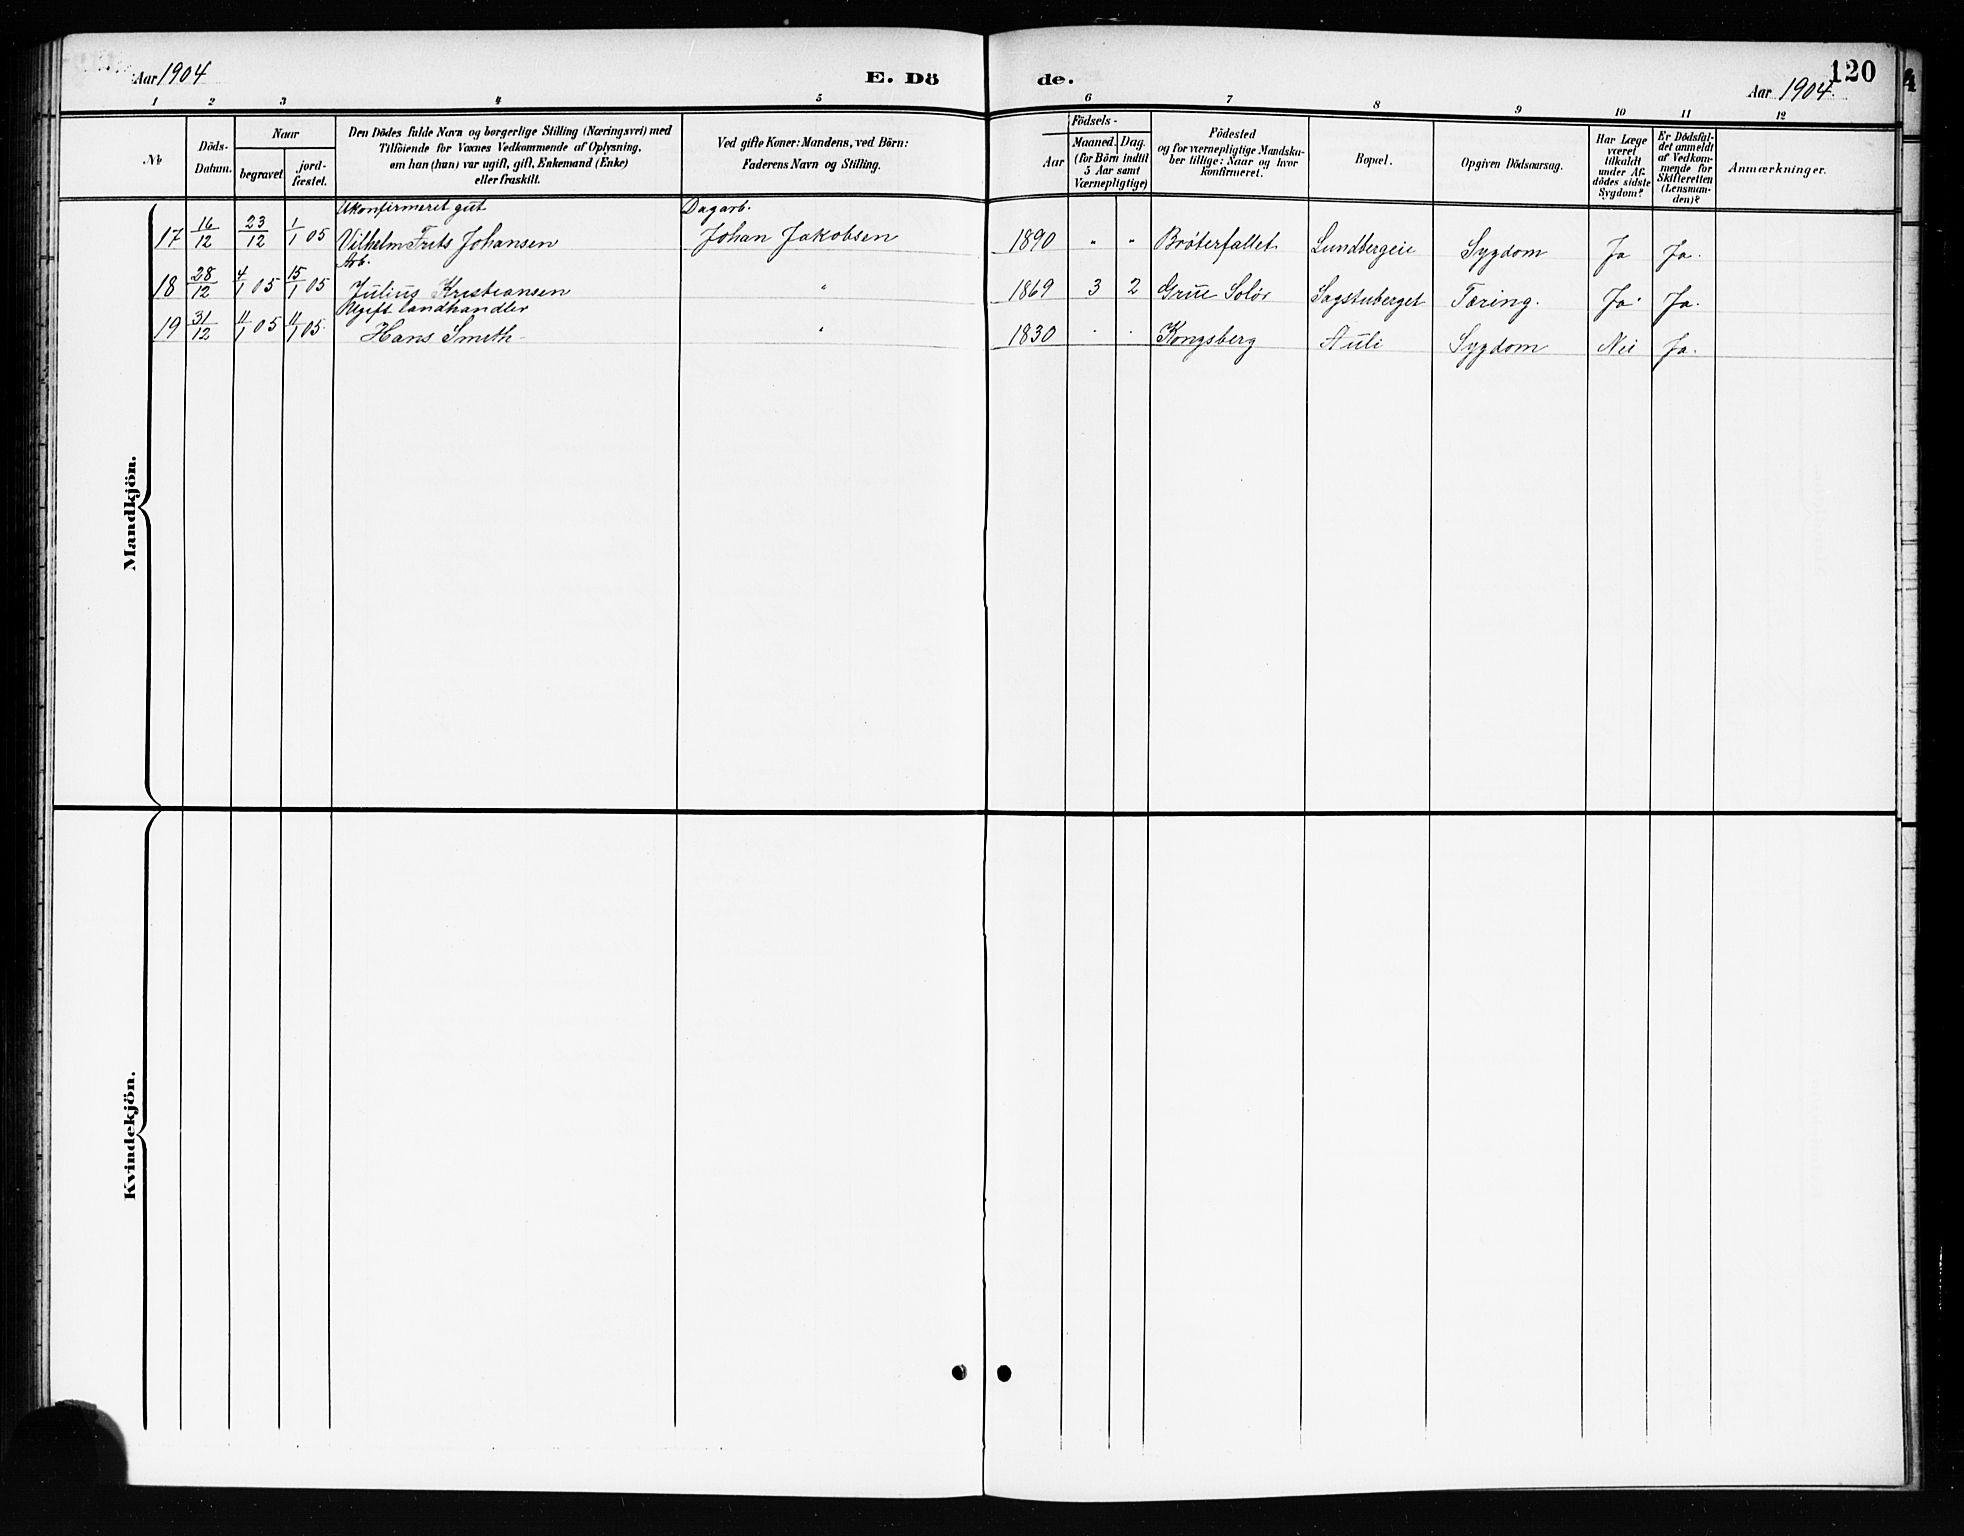 Aar 1904
E. Dö
de.
120
Aar 1904.
1 2 3 4 5 6 7 8 9 10 11 12
No
Döds-
Datum.
Naar
begravet
jord-
fæstet.
Den Dödes fulde Navn og borgerlige Stilling (Næringsvei) med
Tilföiende for Voxnes Vedkommende af Oplysning,
om han (hun) var ugift, gift, Enkemand (Enke)
eller fraskilt.
Ved gifte Koner: Mandens, ved Börn:
Faderens Navn og Stilling.
Födsels-
Aar
Maaned. Dag.
(for Börn indtil
5 Aar samt
Værnepligtige)
Födested
og for værnepligtige Mandska-
ber tillige: Naar og hvor
konfirmeret.
Bopæl.
Opgiven Dödsaarsag.
Har Læge
været
tilkaldt
under Af-
dödes sidste
Sygdom?
Er Dödsfal-
det anmeldt
af Vedkom-
mende for
Skifteretten
(Lensman-
den)?
Anmærkninger.
Mandkjön.
Ukonfirmeret gut Dagarb.
17 16/12 23/12 1/1 05 Vilhelm Frits Johansen Johan Jakobsen 1890 " " Brøterfallet Lundbergeie Sygdom Ja Ja.
Arb.
18 28/12 4/1 05 15/1 05 Julius Kristiansen " 1869 3 2 Grue Solør Sagstuberget Tæring. Ja. Ja.
Ugift landhandler
19 31/12 11/1 05 11/1 05. Hans Smith " 1830 . . Kongsberg Auli Sygdom Nei Ja.
Kvindekjön.